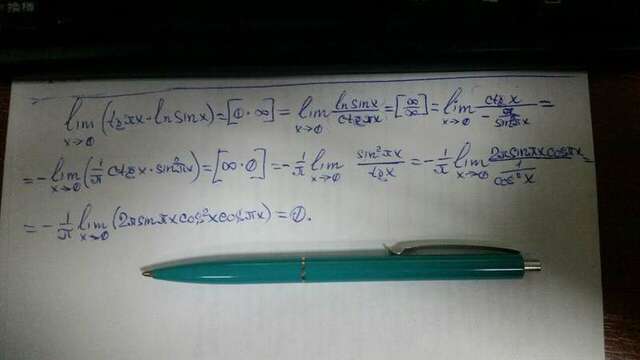 lim x→0 (tg πx · ln sin x) = [0 · ∞] = lim x→0 ln sin x / ctg πx = [∞/∞] = lim x→0 ctg x / (− π / sin² πx) =
= − lim x→0 (1/π ctg x · sin² πx) = [∞ · 0] = − 1/π lim x→0 sin² πx / tg x = − 1/π lim x→0 2π sin πx cos πx / (1 / cos² x) =
= − 1/π lim x→0 (2π sin πx cos² x cos πx) = 0.